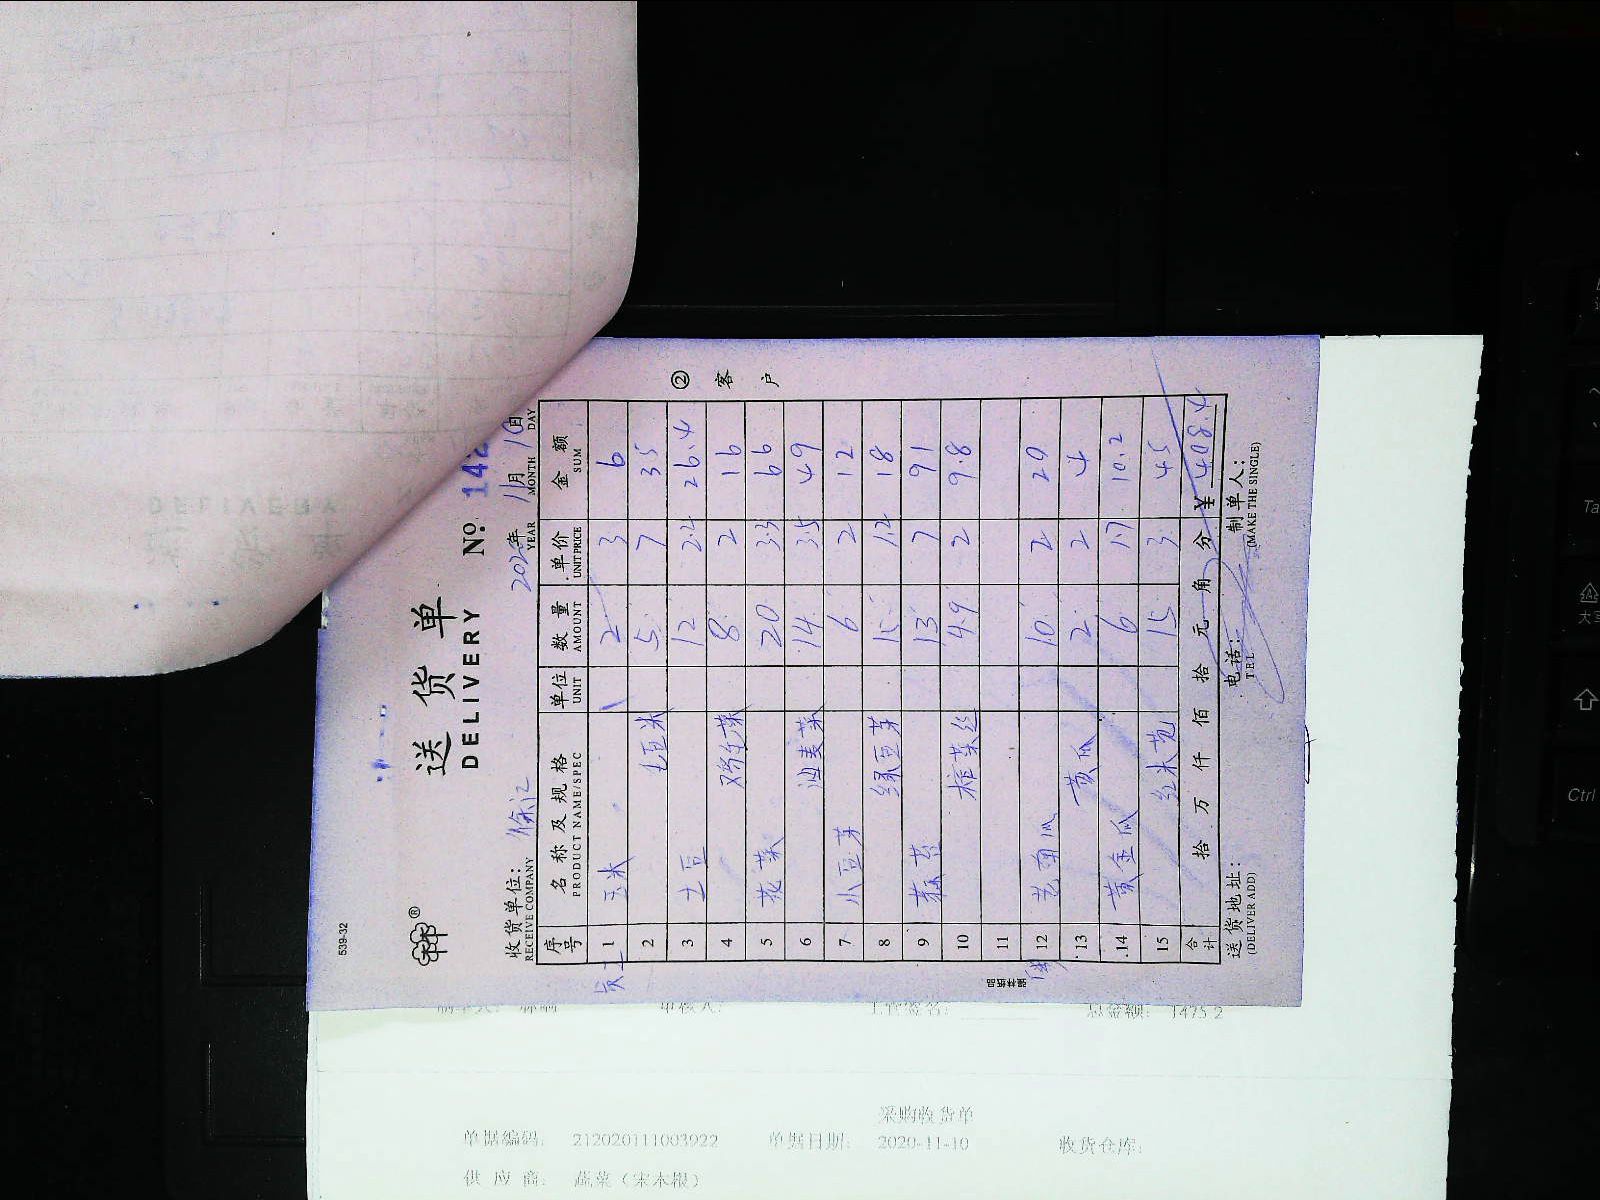 539-32
送货单
DELIVERY
No. 142
收货单位: 徐汇 2020年 11月 10日
RECEIVE COMPANY YEAR MONTH DAY
序号 名称及规格 单位 数量 单价 金额
PRODUCT NAME/SPEC UNIT AMOUNT UNIT PRICE SUM
1 玉米 2 3 6
2 毛豆米 5 7 35
3 土豆 12 2.2 26.4
4 鸡毛菜 8 2 16
5 花菜 20 3.3 66
6 油麦菜 14 3.5 49
7 小豆芽 6 2 12
8 绿豆芽 15 1.2 18
9 蒜苔 13 7 91
10 榨菜丝 4.9 2 9.8
11
12 南瓜 10 2 20
13 黄瓜 2 2 4
14 黄金瓜 6 1.7 10.2
15 红米苋 15 3 45
合计 拾 万 仟 佰 拾 元 角 分 ¥ 408.4
送货地址: 电话: 制单人:
(DELIVER ADD) TEL (MAKE THE SINGLE)
② 客户
总金额: 1475.2
采购收货单
单据编码: 212020111003922 单据日期: 2020-11-10 收货仓库:
供应商: 蔬菜（宋本根）
Ctrl